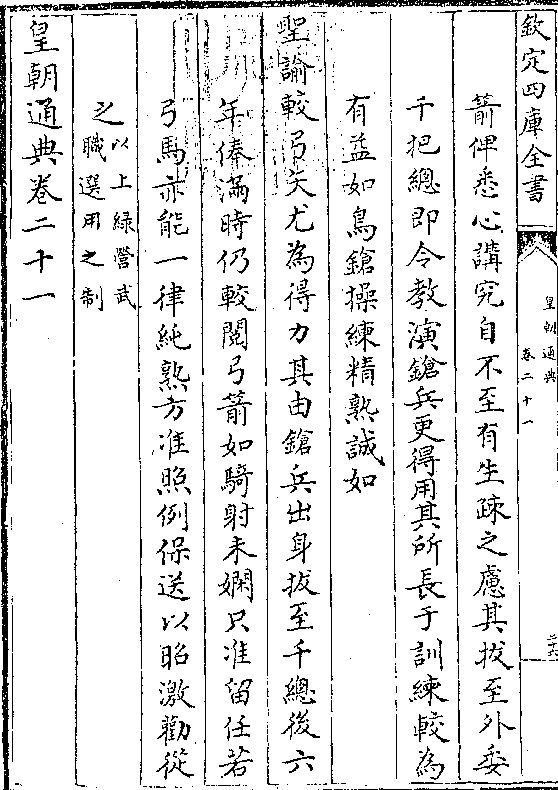 欽定四庫全書
皇朝通典
卷二十一
二十六
箭俾悉心講究自不至有生疎之慮其拔至外委
千把總即令教演鎗兵更得用其所長于訓練較為
有益如鳥鎗操練精熟誠如
聖諭較弓矢尤為得力其由鎗兵出身拔至千總後六
年俸滿時仍較閱弓箭如騎射未嫻只准留任若
弓馬亦能一律純熟方准照例保送以昭激勸從
之以上綠營武
職選用之制
皇朝通典卷二十一